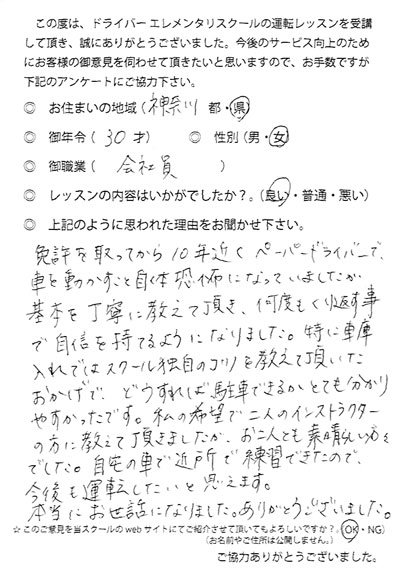 この度は、ドライバーエレメンタリスクールの運転レッスンを受講
して頂き、誠にありがとうございました。今後のサービス向上のため
にお客様の御意見を伺わせて頂きたいと思いますので、お手数ですが
下記のアンケートにご協力下さい。
◎ お住まいの地域(神奈川 都・県)
◎ 御年令(30才) ◎ 性別(男・女)
◎ 御職業(会社員)
◎ レッスンの内容はいかがでしたか?。(良い・普通・悪い)
◎ 上記のように思われた理由をお聞かせ下さい。
免許を取ってから10年近くペーパードライバーで、
車を動かすこと自体恐怖になっていましたが
基本を丁寧に教えて頂き、何度もくり返す事
で自信を持てるようになりました。特に車庫
入れではスクール独自のコツを教えて頂いた
おかげで、どうすれば駐車できるかとても分かり
やすかったです。私の希望で二人のインストラクター
の方に教えて頂きましたが、お二人とも素晴らしい方々
でした。自宅の車で近所で練習できたので、
今後も運転したいと思えます。
本当にお世話になりました。ありがとうございました。
☆このご意見を当スクールのwebサイトにてご紹介させて頂いてもよろしいですか?。(OK・NG)
(お名前やご住所は公開しません。)
ご協力ありがとうございました。